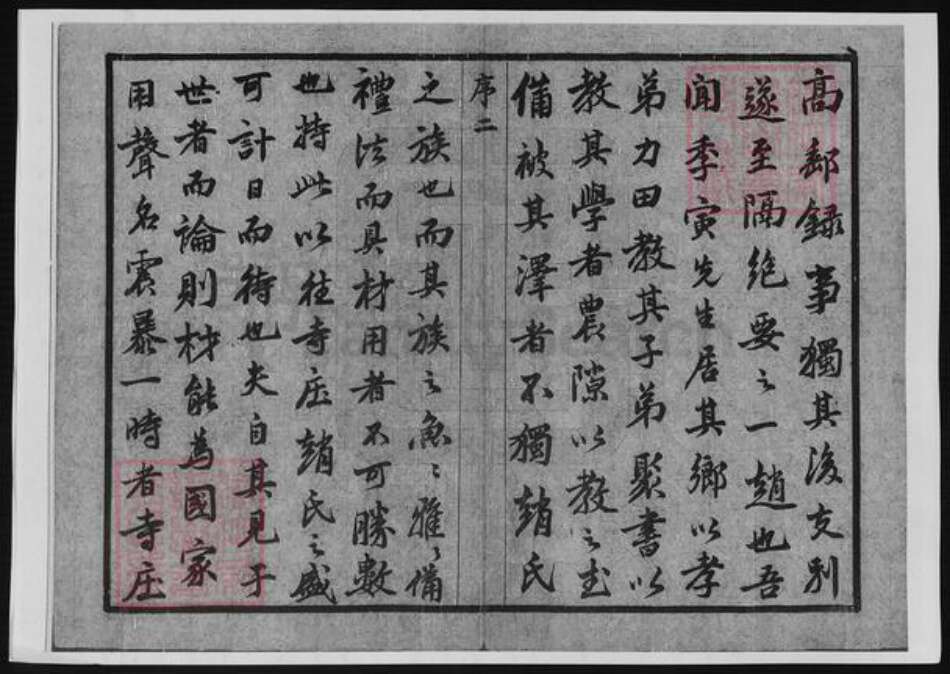 高郵錄事獨其後支别
遂至隔絶要之一趙也吾
聞季寅先生居其鄉以孝
弟力田教其子弟聚書以
教其學者農隙以教之武
備被其澤者不獨趙氏
序二
之族也而其族之魚〻雅〻備
禮法而具材用者不可勝數
也持此以往寺庄趙氏之盛
可計日而待也夫自其見于
世者而論則材能爲國家
用聲名震暴一時者寺庄